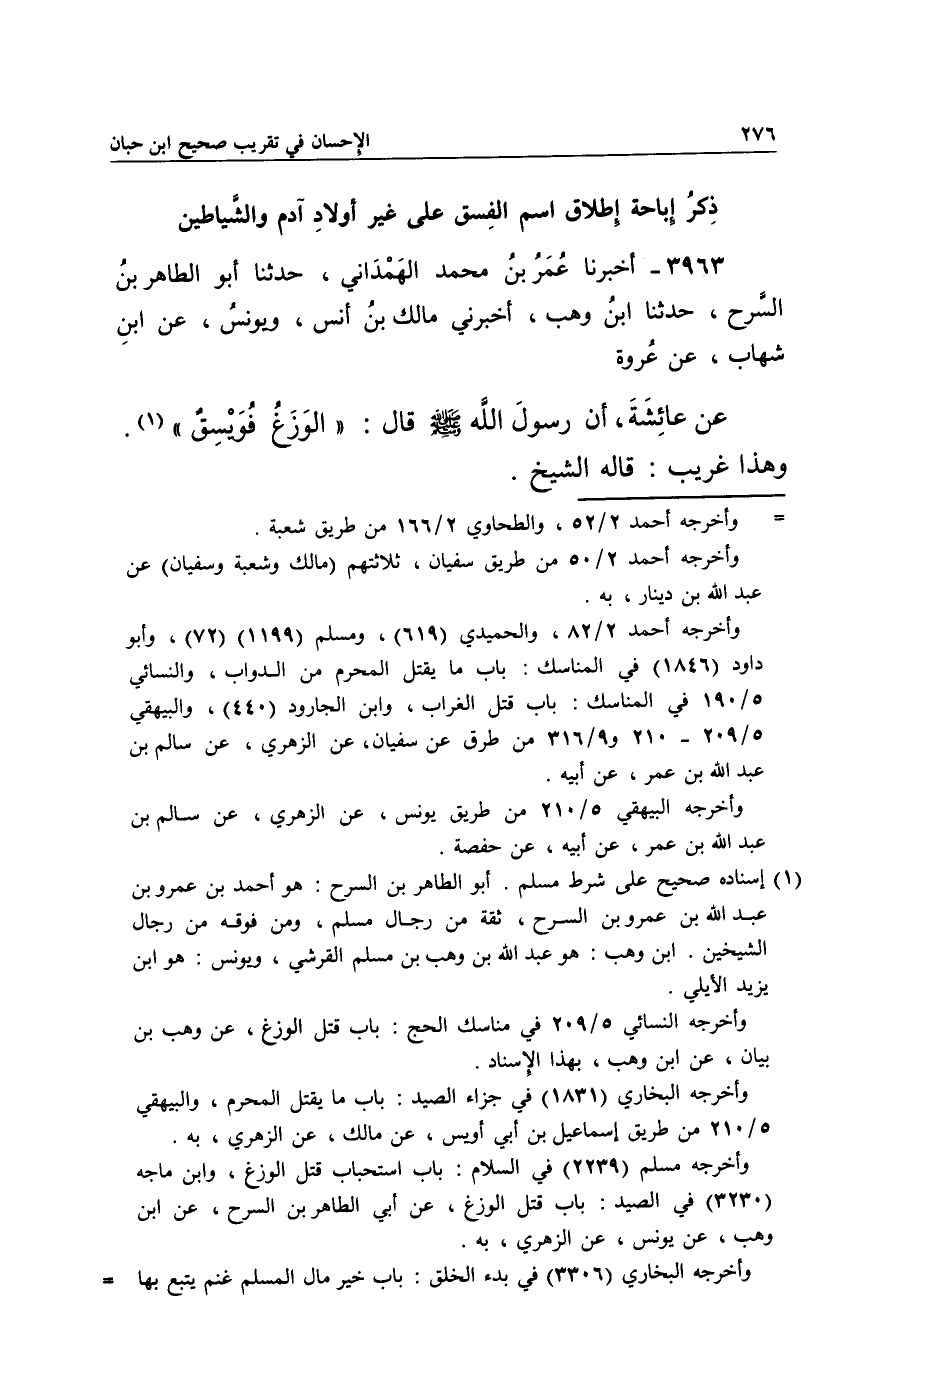 ٢٧٦ الإحسان في تقريب صحيح ابن حبان
ذِكرُ إباحة إطلاق اسم الفِسق على غير أولادِ آدم والشَّياطين
٣٩٦٣ - أخبرنا عُمَرُ بنُ محمد الهَمْدَاني ، حدثنا أبو الطاهر بنُ
السَّرح ، حدثنا ابنُ وهب ، أخبرني مالك بنُ أنس ، ويونسُ ، عن ابنِ
شهاب ، عن عُروة
عن عائِشَةَ، أن رسولَ اللَّه ﷺ قال : « الوَزَغُ فُوَيْسِقٌ » (١) .
وهذا غريب : قاله الشيخ .
= وأخرجه أحمد ٥٢/٢ ، والطحاوي ١٦٦/٢ من طريق شعبة .
وأخرجه أحمد ٥٠/٢ من طريق سفيان ، ثلاثتهم (مالك وشعبة وسفيان) عن
عبد الله بن دينار ، به .
وأخرجه أحمد ٨٢/٢ ، والحميدي (٦١٩) ، ومسلم (١١٩٩) (٧٢) ، وأبو
داود (١٨٤٦) في المناسك : باب ما يقتل المحرم من الدواب ، والنسائي
١٩٠/٥ في المناسك : باب قتل الغراب ، وابن الجارود (٤٤٠) ، والبيهقي
٢٠٩/٥ - ٢١٠ و٣١٦/٩ من طرق عن سفيان، عن الزهري ، عن سالم بن
عبد الله بن عمر ، عن أبيه .
وأخرجه البيهقي ٢١٠/٥ من طريق يونس ، عن الزهري ، عن سالم بن
عبد الله بن عمر ، عن أبيه ، عن حفصة .
(١) إسناده صحيح على شرط مسلم . أبو الطاهر بن السرح : هو أحمد بن عمرو بن
عبد الله بن عمرو بن السرح ، ثقة من رجال مسلم ، ومن فوقه من رجال
الشيخين . ابن وهب : هو عبد الله بن وهب بن مسلم القرشي ، ويونس : هو ابن
يزيد الأيلي .
وأخرجه النسائي ٢٠٩/٥ في مناسك الحج : باب قتل الوزغ ، عن وهب بن
بيان ، عن ابن وهب ، بهذا الإسناد .
وأخرجه البخاري (١٨٣١) في جزاء الصيد : باب ما يقتل المحرم ، والبيهقي
٢١٠/٥ من طريق إسماعيل بن أبي أويس ، عن مالك ، عن الزهري ، به .
وأخرجه مسلم (٢٢٣٩) في السلام : باب استحباب قتل الوزغ ، وابن ماجه
(٣٢٣٠) في الصيد : باب قتل الوزغ ، عن أبي الطاهر بن السرح ، عن ابن
وهب ، عن يونس ، عن الزهري ، به .
وأخرجه البخاري (٣٣٠٦) في بدء الخلق : باب خير مال المسلم غنم يتبع بها =